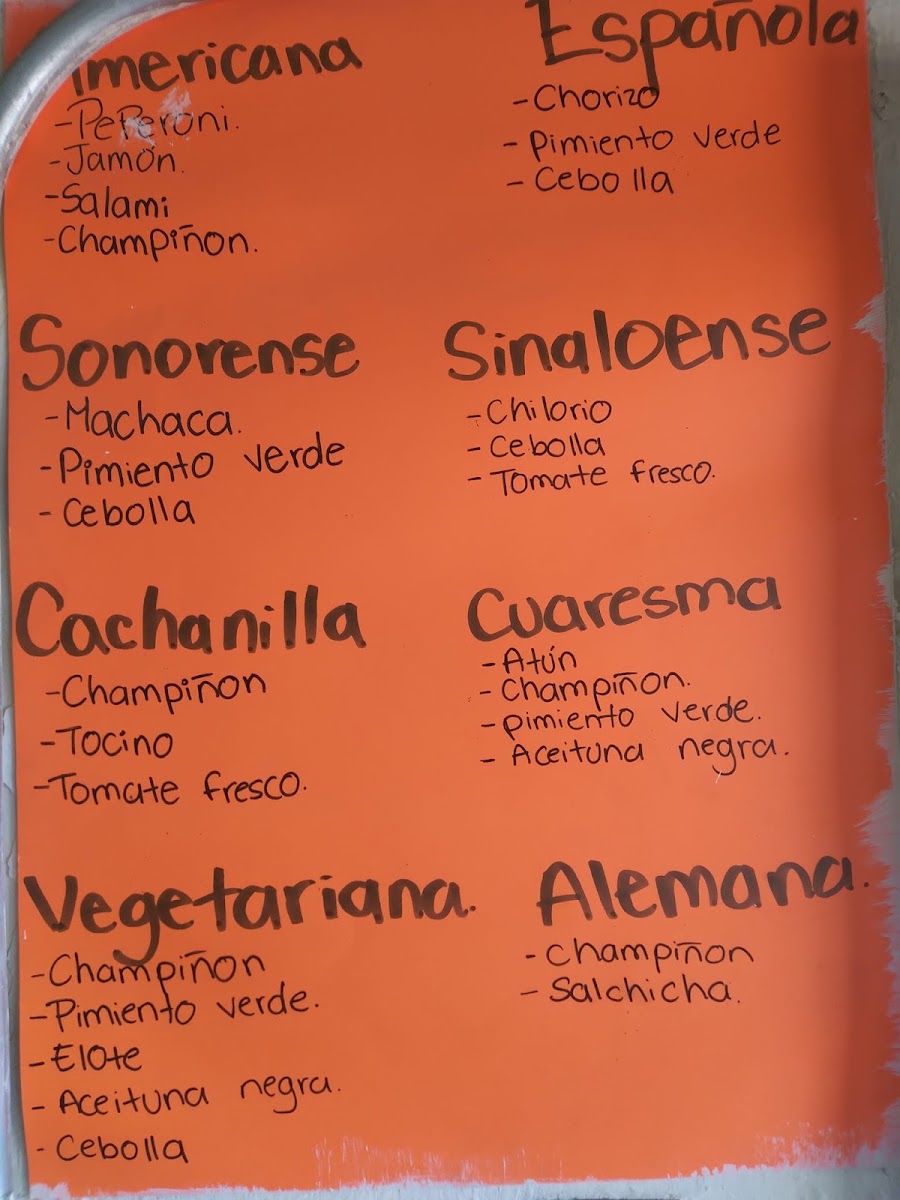 Americana
-PePeroni.
-Jamón.
-Salami
-Champiñon.
Española
-Chorizo
- Pimiento verde
- Cebolla
Sonorense
-Machaca.
-Pimiento verde
- Cebolla
Sinaloense
-Chilorio
-Cebolla
- Tomate fresco.
Cachanilla
-Champiñon
-Tocino
-Tomate fresco.
Cuaresma
-Atún
- Champiñon.
-pimiento verde.
- Aceituna negra.
Vegetariana.
-Champiñon
-Pimiento verde.
-Elote
- Aceituna negra.
- Cebolla
Alemana.
- Champiñon
- Salchicha.